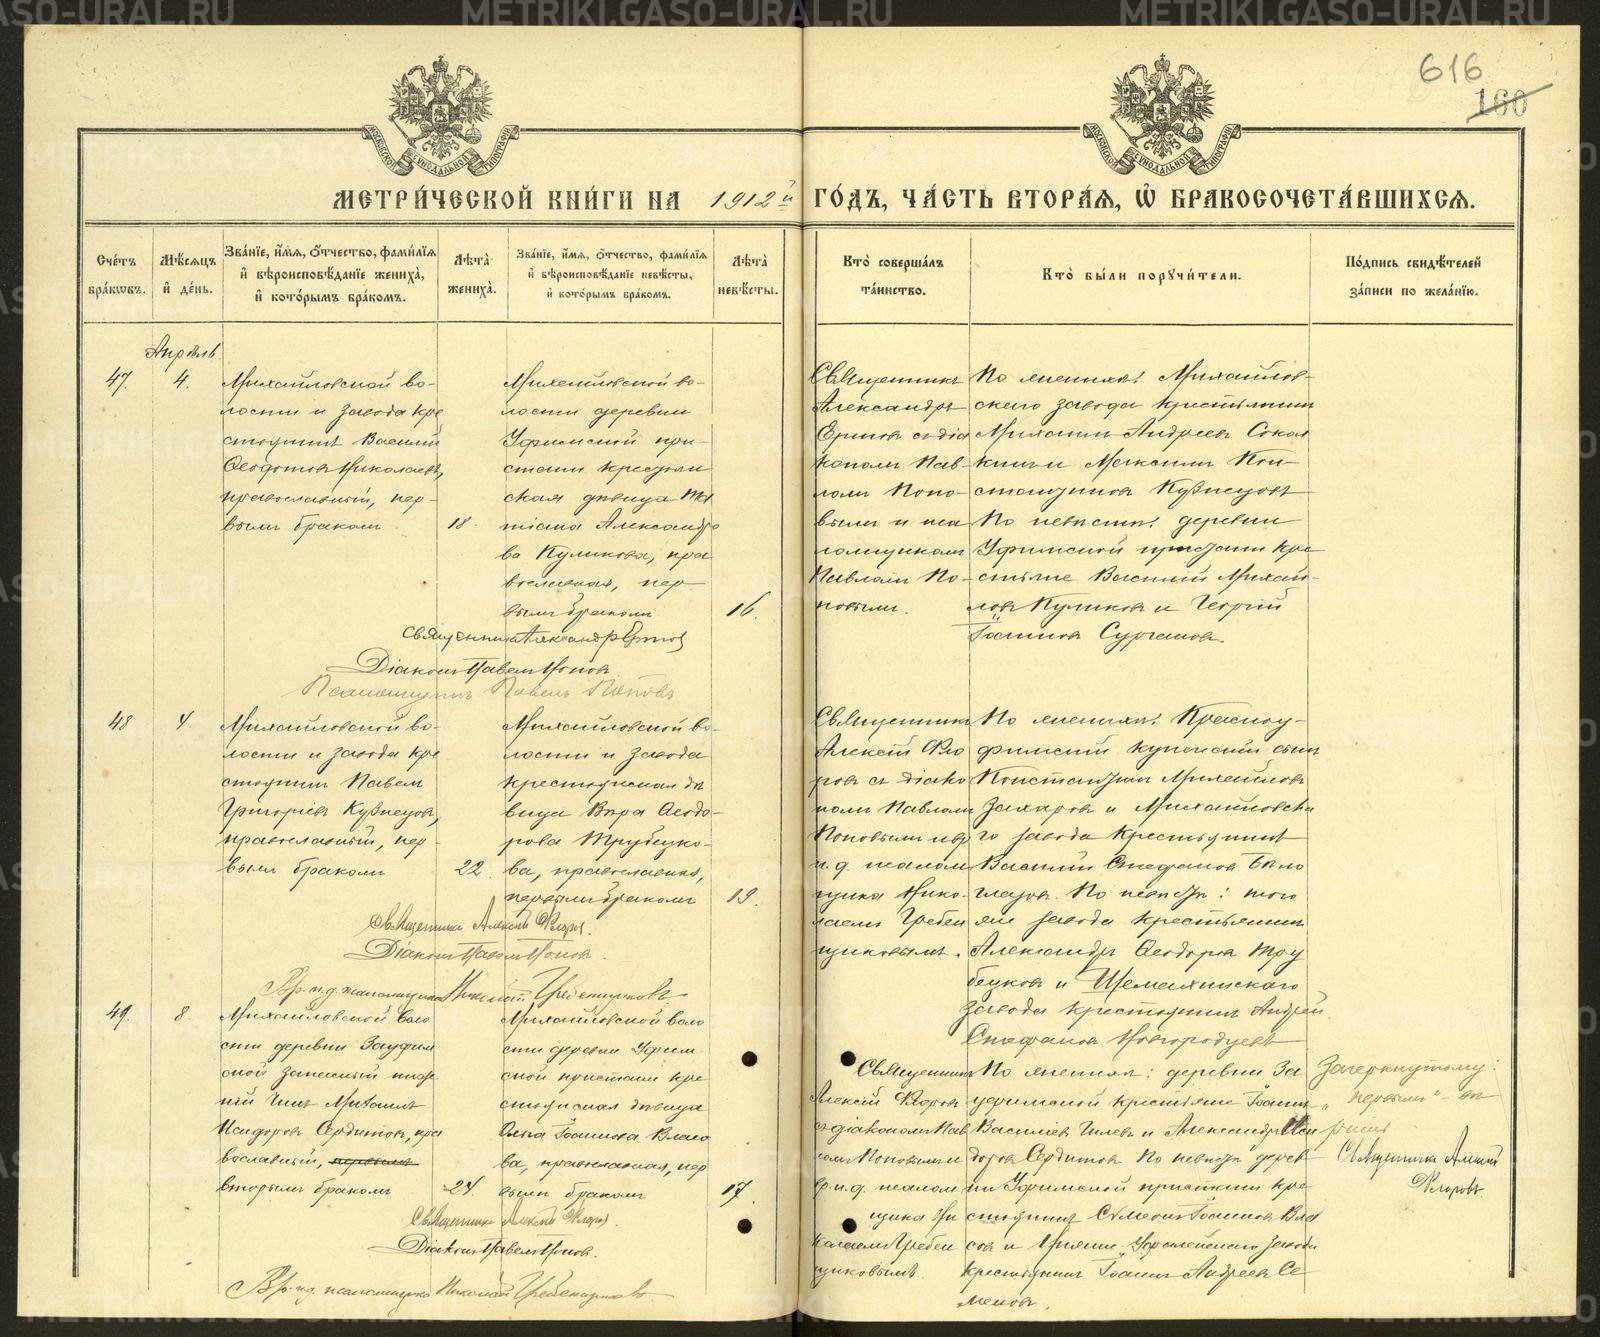 616
160
МЕТРИ́ЧЕСКОЙ КНИ́ГИ НА 1912й ГО́ДЪ, ЧА́СТЬ ВТОРА́Я, Ѡ҆ БРАКОСОЧЕТА́ВШИХСЯ.
Сче́тъ бра́ковъ.
Мѣ́сяцъ и҆ де́нь.
Зва́нїе, и҆́мя, ѻ҆́тчество, фами́лїя и҆ вѣроисповѣ́данїе жениха̀, и҆ кото́рымъ бра́комъ.
Лѣ́та жениха̀.
Зва́нїе, и҆́мя, ѻ҆́тчество, фами́лїя и҆ вѣроисповѣ́данїе невѣ́сты, и҆ кото́рымъ бра́комъ.
Лѣ́та невѣ́сты.
Кто̀ соверша́лъ та́инство.
Кто̀ бы́ли поручи́тели.
По́дпись свидѣ́телей за́писи по жела́нїю.
Апрѣль
47.
4.
Михайловской во-
лости и завода кре
стьянинъ Василій
Ѳеодотовъ Николаевъ,
православный, пер-
вымъ бракомъ
18.
Михайловской во-
лости деревни
Уфимской при-
стани крестьян
ская дѣвица Та
тіана Александро
ва Куликова, пра
вославная, пер
вымъ бракомъ
16.
Священникъ
Александръ
Ершовъ съ діа
кономъ Пав-
ломъ Попо-
вымъ и пса
ломщикомъ
Павломъ По-
повымъ.
По женихѣ: Михайлов-
скаго завода крестьянинъ
Михаилъ Андреевъ
и Максимъ Кон-
стантиновъ Кузнецовъ
По невѣстѣ: деревни
Уфимской пристани кре
стьяне Василій Михай-
ловъ Куликовъ и Георгій
Іоанновъ
Священникъ Александръ Ершовъ
Діаконъ Павелъ Поповъ
Псаломщикъ Павелъ Поповъ
48
4
Михайловской во-
лости и завода кре
стьянинъ Павелъ
Григоріевъ Кузнецовъ,
православный, пер-
вымъ бракомъ
22
Михайловской во-
лости и завода
крестьянская дѣ
вица Вѣра Ѳеодо-
рова Трубецко-
ва, православная,
первымъ бракомъ
19.
Священникъ
Алексій Фло
ровъ съ діако
номъ Павломъ
Поповымъ и вр
и.д. псалом
щика Нико-
лаемъ Гребен
щиковымъ.
По женихѣ: Красноу-
фимскій купеческій сынъ
Константинъ Михайловъ
Захаровъ и Михайловска
го завода крестьянинъ
Василій Стефановъ Бѣло
глазовъ. По невѣстѣ: того
же завода крестьянинъ
Александръ Ѳеодоровъ Тру
бецковъ и Шемахинскаго
завода крестьянинъ Андрей
Стефановъ Новгородцевъ
Священникъ Алексій Флоровъ.
Діаконъ Павелъ Поповъ.
Вр. и.д. псаломщика Николай Гребенщиковъ
49.
8.
Михайловской воло
сти деревни Зауфим
ской запасный ниж
ній чинъ Михаилъ
Исидоровъ Сердитовъ, пра
вославный, первымъ
вторымъ бракомъ
24.
Михайловской воло
сти деревни Уфим
ской пристани кре
стьянская дѣвица
Ольга Іоаннова Власо
ва, православная, пер
вымъ бракомъ
17.
Священникъ
Алексій Флоровъ
съ діакономъ Пав
ломъ Поповымъ и
вр.и.д. псалом
щика Ни
колаемъ Гребен
щиковымъ.
По женихѣ: деревни За
уфимской крестьяне Іоаннъ
Василіевъ и Александръ Иси
доровъ Сердитовъ По невѣстѣ: дерев
ни Уфимской пристани кре
стьянинъ Симеонъ Іоанновъ Вла
совъ и завода
крестьянинъ Іоаннъ Андреевъ Се
меновъ.
Зачеркнутому:
„первымъ"
Священникъ Алексій
Флоровъ
Священникъ Алексій Флоровъ.
Діаконъ Павелъ Поповъ.
Вр. и.д. псаломщика Николай Гребенщиковъ.
METRIKI.GASO-URAL.RU